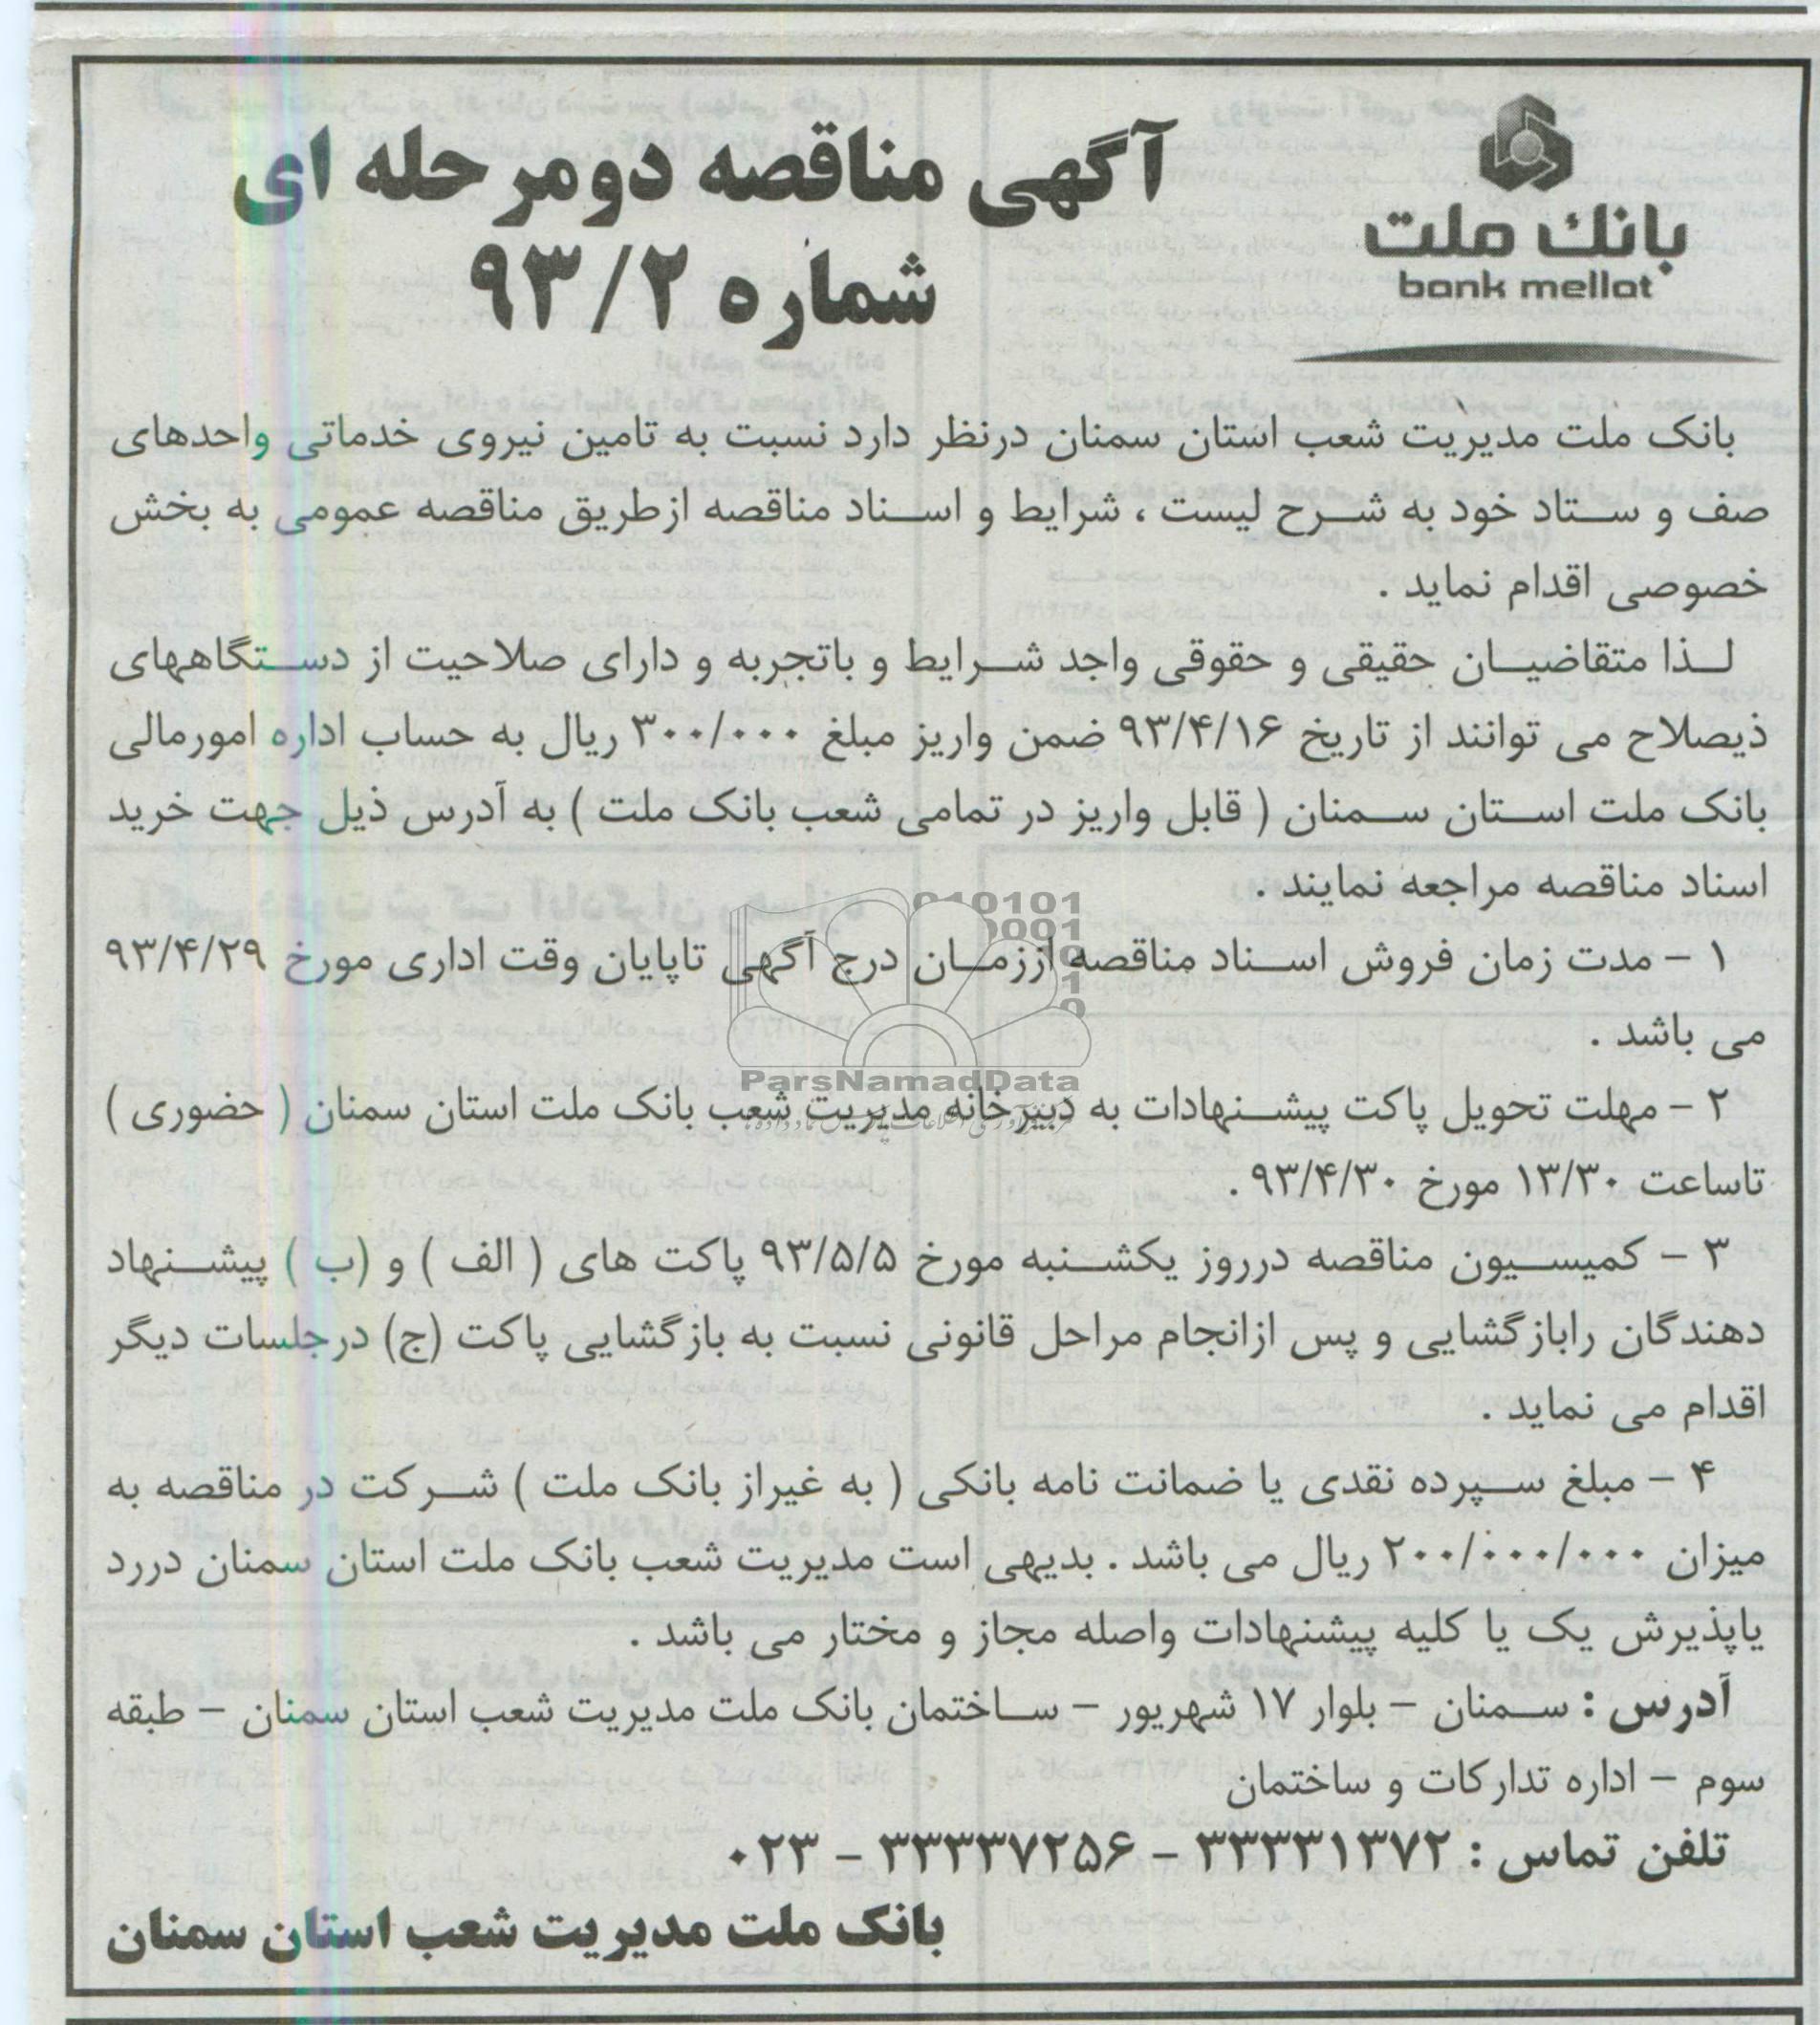 بانك ملت
bank mellat
آگهی مناقصه دومرحله ای
شماره ۹۳/۲
بانک ملت مدیریت شعب استان سمنان درنظر دارد نسبت به تامین نیروی خدماتی واحدهای
صف و ستاد خود به شرح لیست ، شرایط و اسناد مناقصه ازطریق مناقصه عمومی به بخش
خصوصی اقدام نماید .
لذا متقاضیان حقیقی و حقوقی واجد شرایط و باتجربه و دارای صلاحیت از دستگاههای
ذیصلاح می توانند از تاریخ ۹۳/۴/۱۶ ضمن واریز مبلغ ۳۰۰/۰۰۰ ریال به حساب اداره امورمالی
بانک ملت استان سمنان ( قابل واریز در تمامی شعب بانک ملت ) به آدرس ذیل جهت خرید
اسناد مناقصه مراجعه نمایند .
۱ – مدت زمان فروش اسناد مناقصه اززمان درج آگهی تاپایان وقت اداری مورخ ۹۳/۴/۲۹
می باشد .
ParsNamadData
۲ – مهلت تحویل پاکت پیشنهادات به دبیرخانه مدیریت شعب بانک ملت استان سمنان ( حضوری )
تاساعت ۱۳/۳۰ مورخ ۹۳/۴/۳۰ .
۳ – کمیسیون مناقصه درروز یکشنبه مورخ ۹۳/۵/۵ پاکت های ( الف ) و (ب ) پیشنهاد
دهندگان رابازگشایی و پس ازانجام مراحل قانونی نسبت به بازگشایی پاکت (ج) درجلسات دیگر
اقدام می نماید .
۴ – مبلغ سپرده نقدی یا ضمانت نامه بانکی ( به غیراز بانک ملت ) شرکت در مناقصه به
میزان ۲۰۰/۰۰۰/۰۰۰ ریال می باشد . بدیهی است مدیریت شعب بانک ملت استان سمنان دررد
یاپذیرش یک یا کلیه پیشنهادات واصله مجاز و مختار می باشد .
آدرس : سمنان – بلوار ۱۷ شهریور – ساختمان بانک ملت مدیریت شعب استان سمنان – طبقه
سوم – اداره تدارکات و ساختمان
تلفن تماس : ۳۳۳۳۱۳۷۲ – ۳۳۳۳۷۲۵۶ – ۰۲۳
بانک ملت مدیریت شعب استان سمنان